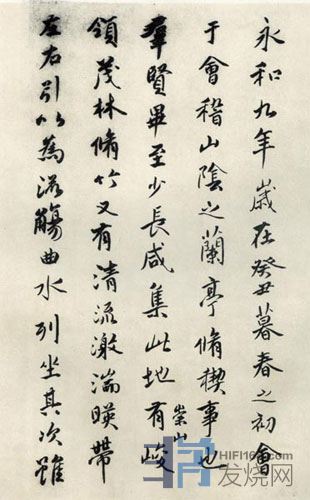 永和九年歲在癸丑暮春之初會
于會稽山陰之蘭亭脩稧事也
羣賢畢至少長咸集此地有崇山峻
領茂林脩竹又有清流激湍暎帶
左右引以為流觴曲水列坐其次雖
HIFI168.com
发烧网